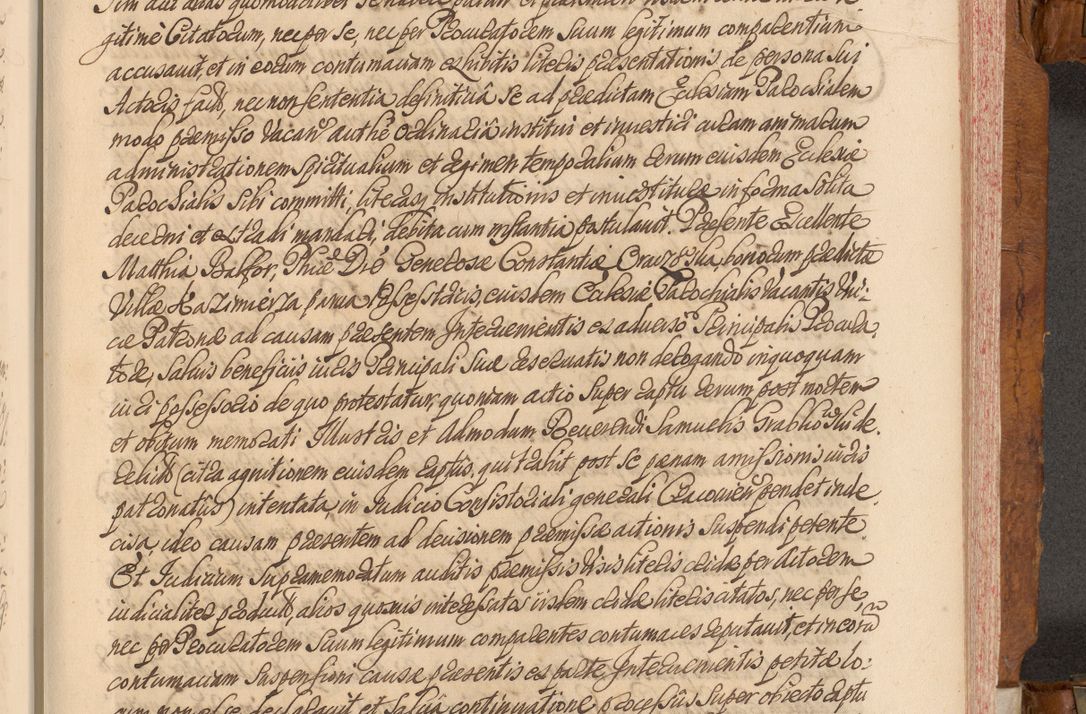 gitimè Citatorum, nec per se, nec per Procuratorem suum legitimum comparentium
accusavit, et in eorum contumaciam exhibitis literis præsentationis de persona sui
Actoris factæ, nec non sententia definitiva se ad prædictam Ecclesiam Parochialem
modo præmisso vacan authē ordinaria institui et investiri curam animarum
administrationem spiritualium et regimen temporalium rerum eiusdem Ecclesiæ
Parochialis sibi committi, literasq institutionis et investituræ in forma solita
decerni et extradi mandari, debita cum instantia postulavit. Præsente Excellente
Matthia Balfor, Phiæ Drē Generosæ Constantiæ bonorum prædictæ
Villæ Kazimierza parva Possessricis, eiusdem Ecclesiæ Parochialis vacantis uni-
cæ Patronæ ad causam præsentem Intervenientis ex adverso Principalis Procura
tore, salvis beneficiis iuris Principali suæ reservatis non derogando in quoquam
iuri possessorio de quo protestatur, quoniam actio super raptu rerum post mortem
et obitum memorati Illustris et Admodum Reverendi Samuelis
relictæ (citra agnitionem eiusdem raptus, qui trahit post se pænam amissionis iuris
patronatus) intentata, in Iudicio Consistoriali generali Cracovien pendet inde
cisa, ideo causam præsentem ad decisionem præmissæ actionis suspendi petente.
Et Iudicium supramemoratum auditis præmissis visis literis cridæ per Actorem
iudicialiter productæ, alios quosvis interessatos iisdem cridæ literis citatos, nec per se,
nec per Procuratorem suum legitimum comparentes contumaces reputavit, et in eorū
contumaciam suspensioni causæ præsentis ex parte Intervenientis petitæ lo:
cum non esse declaravit et salva continuatione processus super obiecto raptu